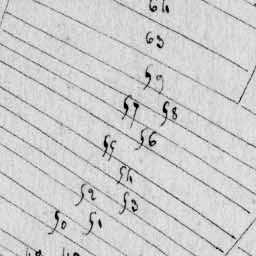 64
63
59
57 58
56
55
54
52 53
50 51